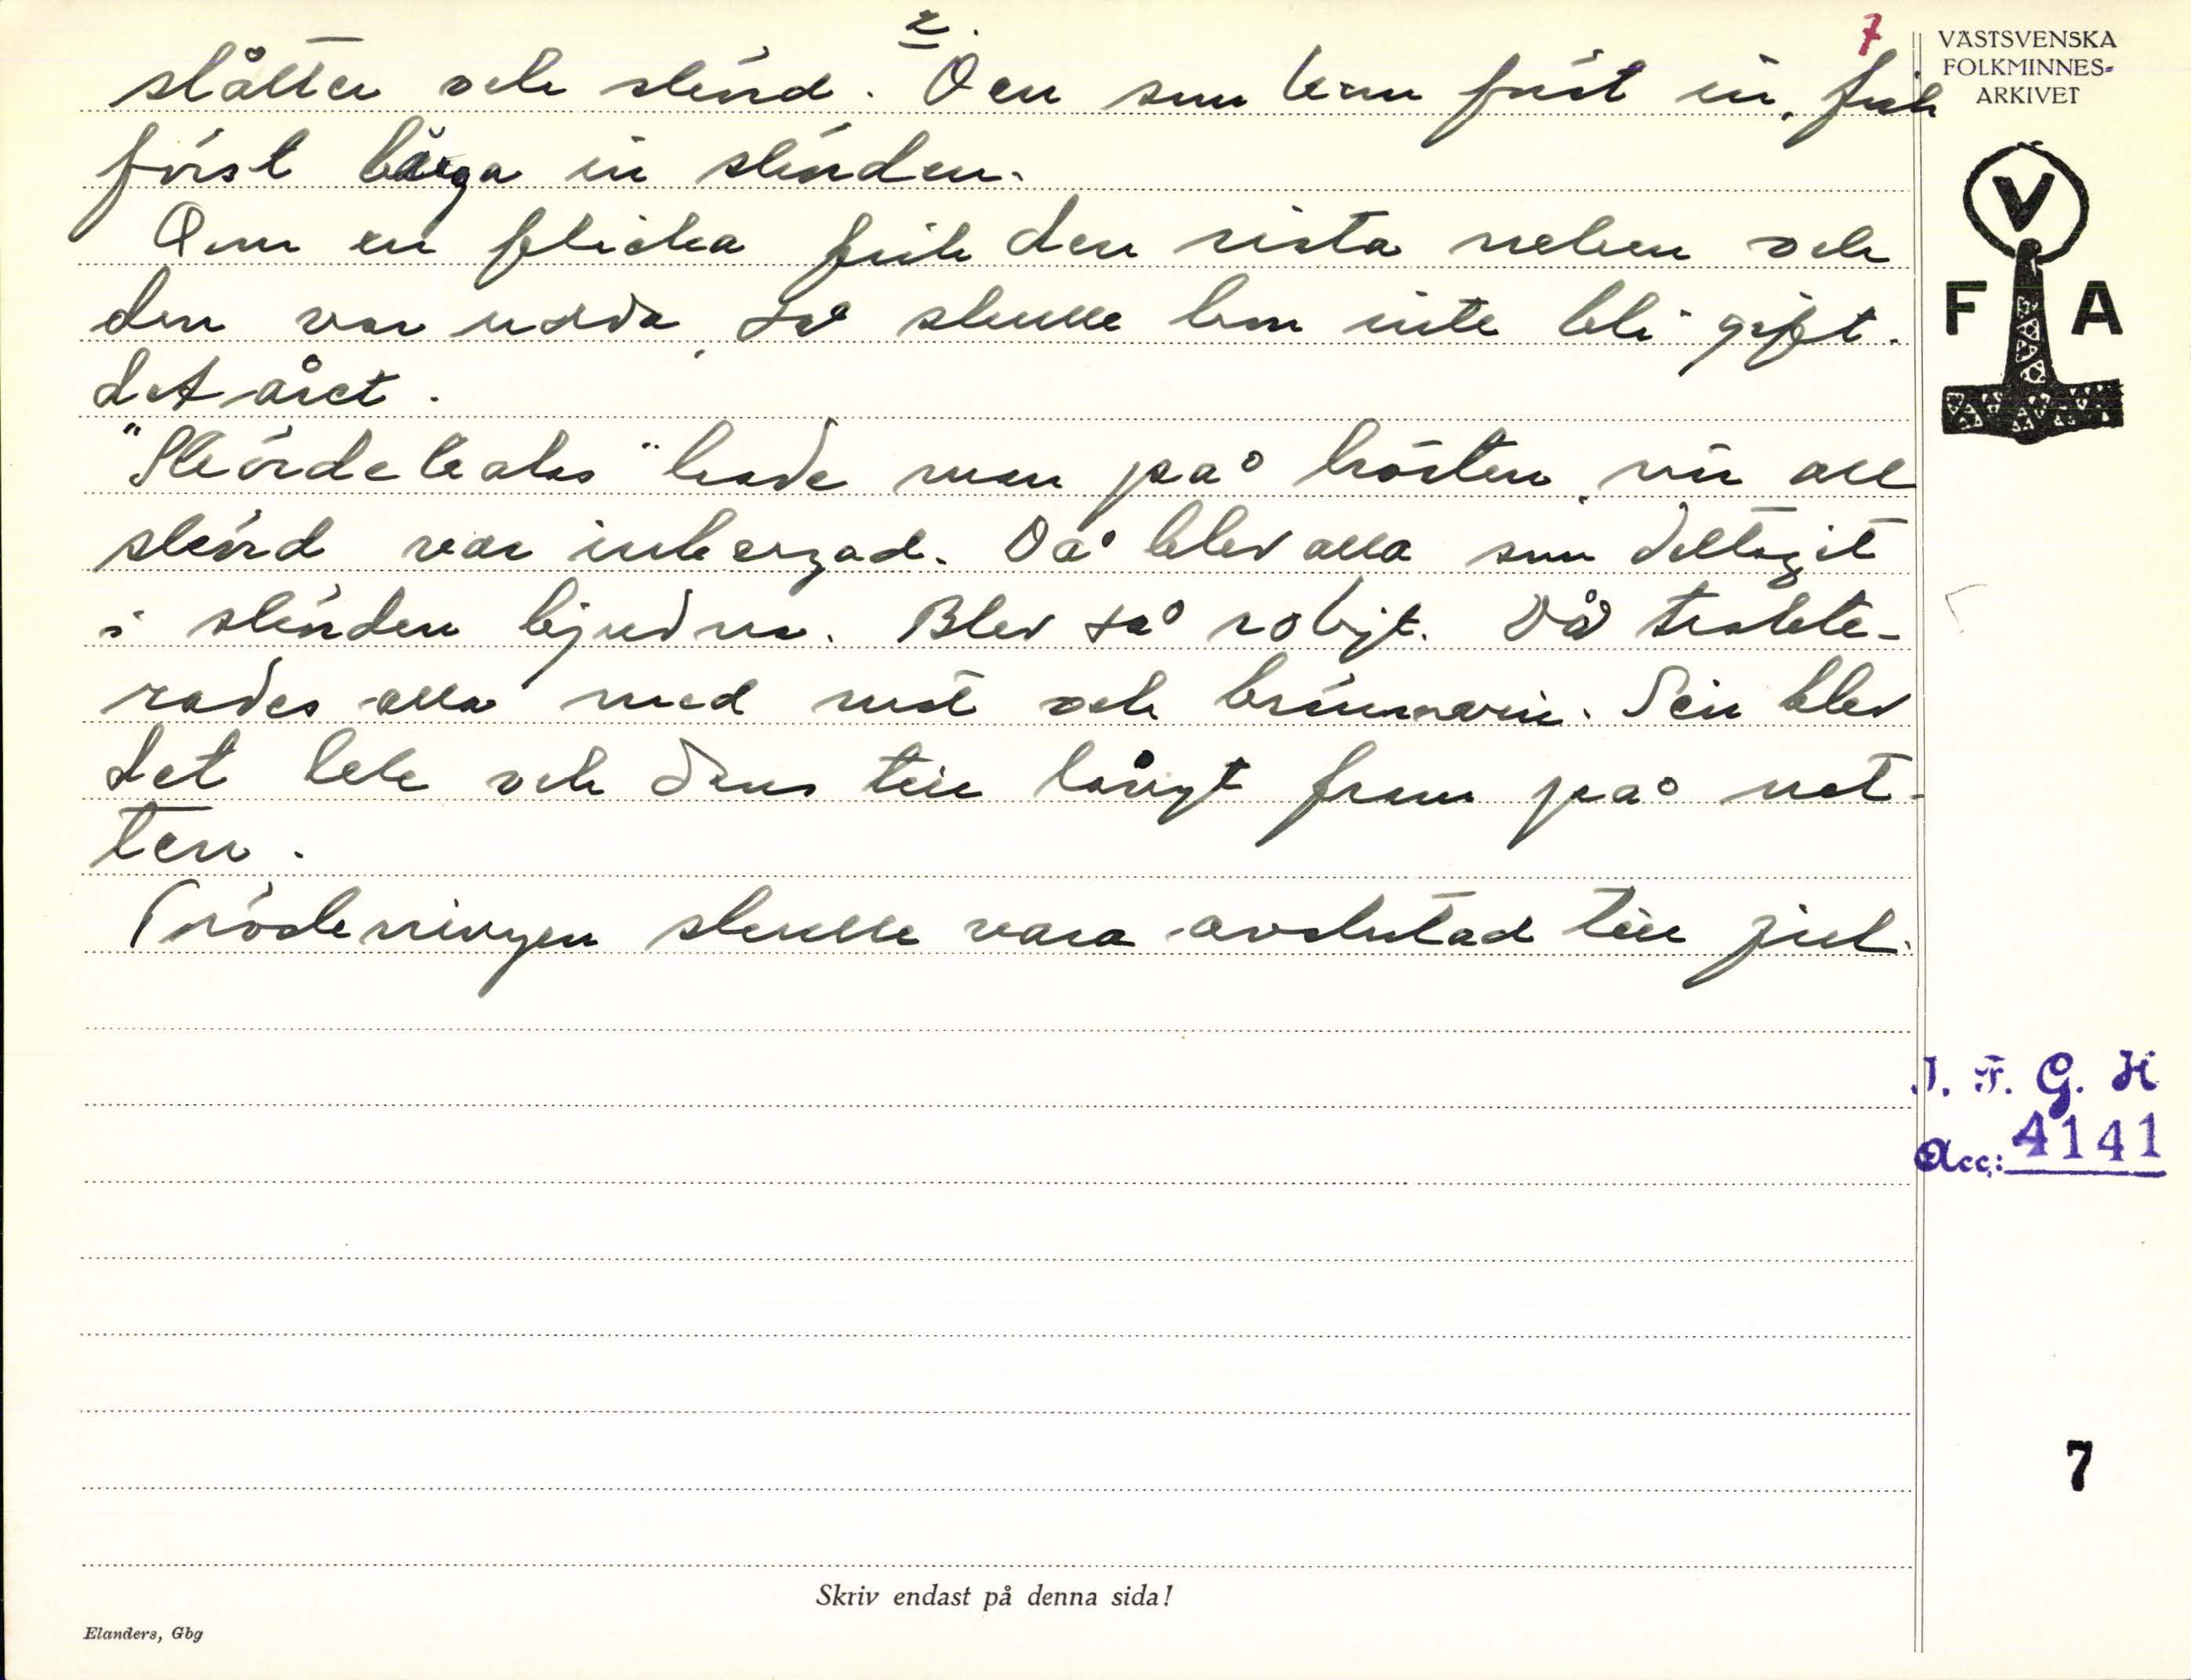 2.
7
slåtter och skörd. Den som kom först in, fick
först bärga in skörden.
Om en flicka fick den sista neken och
den var udda, så skulle hon inte bli gift
det året.
"Skördekalas" hade man på hösten, när all
skörd var inbergad. Då blev alla som deltagit
i skörden bjudna. Blev så roligt. Då trakte-
rades alla med mat och brännvin. Sen blev
det lek och dans till långt fram på nat-
ten.
Tröskningen skulle vara avslutad till jul.
VÄSTSVENSKA
FOLKMINNES-
ARKIVET
V
F A
I. F. G. H
Acc: 4141
7
Skriv endast på denna sida!
Elanders, Gbg